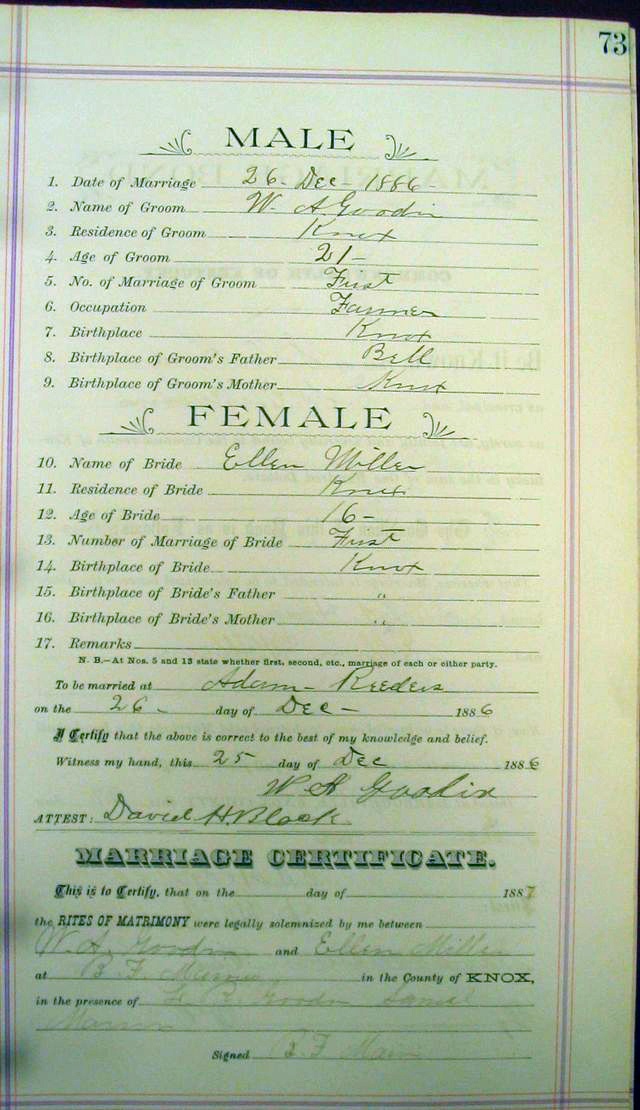 73
MALE
1. Date of Marriage 26- Dec- 1886-
2. Name of Groom W. A. Goodin
3. Residence of Groom Knox
4. Age of Groom 21-
5. No. of Marriage of Groom First
6. Occupation Farmer
7. Birthplace Knox
8. Birthplace of Groom's Father Bell
9. Birthplace of Groom's Mother Knox
FEMALE
10. Name of Bride Ellen Miller
11. Residence of Bride Knox
12. Age of Bride 16-
13. Number of Marriage of Bride First
14. Birthplace of Bride Knox
15. Birthplace of Bride's Father "
16. Birthplace of Bride's Mother "
17. Remarks
N. B.—At Nos. 5 and 13 state whether first, second, etc., marriage of each or either party.
To be married at Adam- Reeders
on the 26- day of Dec- 1886
I Certify that the above is correct to the best of my knowledge and belief.
Witness my hand, this 25 day of Dec 1886
W A Goodin
ATTEST: David H. Black
MARRIAGE CERTIFICATE.
This is to Certify, that on the day of 1887
the RITES OF MATRIMONY were legally solemnized by me between
W. A. Goodin and Ellen Miller
at B. F. in the County of KNOX,
in the presence of Goodin
Signed B. F.